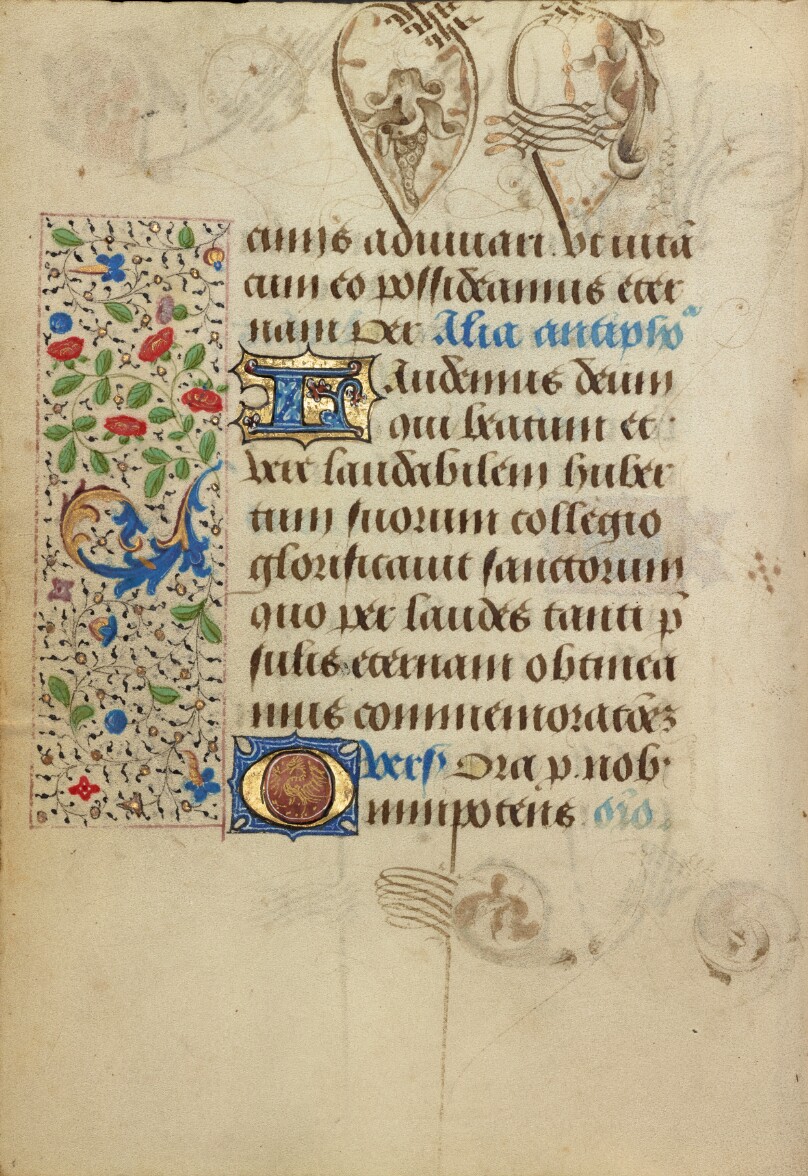 cuius adiuuari. vt vitā
cum eo possideamus eter
nam Per Alia antiphoᵃ
Laudemus deum
qui beatum et
vere laudabilem huber
tum suorum collegio
glorificauit sanctorum
quo per laudes tanti p̄
sulis eternam obtinea
mus commemoratōeʒ
vers Ora p. nob
Omnipotens oro